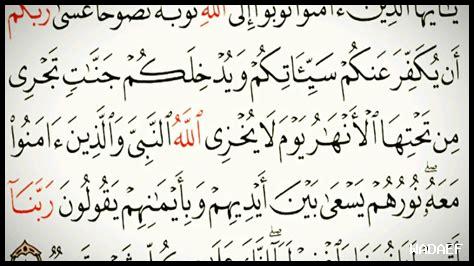 يَٰٓأَيُّهَا ٱلَّذِينَ ءَامَنُوا۟ تُوبُوٓا۟ إِلَى ٱللَّهِ تَوْبَةً نَّصُوحًا عَسَىٰ رَبُّكُمْ
أَن يُكَفِّرَ عَنكُمْ سَيِّـَٔاتِكُمْ وَيُدْخِلَكُمْ جَنَّٰتٍ تَجْرِى
مِن تَحْتِهَا ٱلْأَنْهَٰرُ يَوْمَ لَا يُخْزِى ٱللَّهُ ٱلنَّبِىَّ وَٱلَّذِينَ ءَامَنُوا۟
مَعَهُۥ ۖ نُورُهُمْ يَسْعَىٰ بَيْنَ أَيْدِيهِمْ وَبِأَيْمَٰنِهِمْ يَقُولُونَ رَبَّنَآ
WADAEF